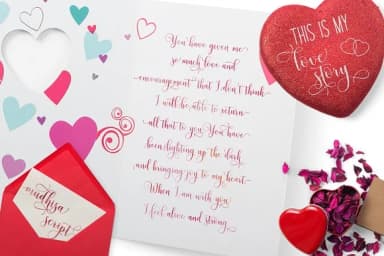 You have given me
so much love and
encouragement that I don't think
I will be able to return
all that to you. You have
been lighting up the dark
and bringing joy to my heart.
When I am with you,
I feel alive and strong.
THIS IS MY
love
story
mudhisa
script